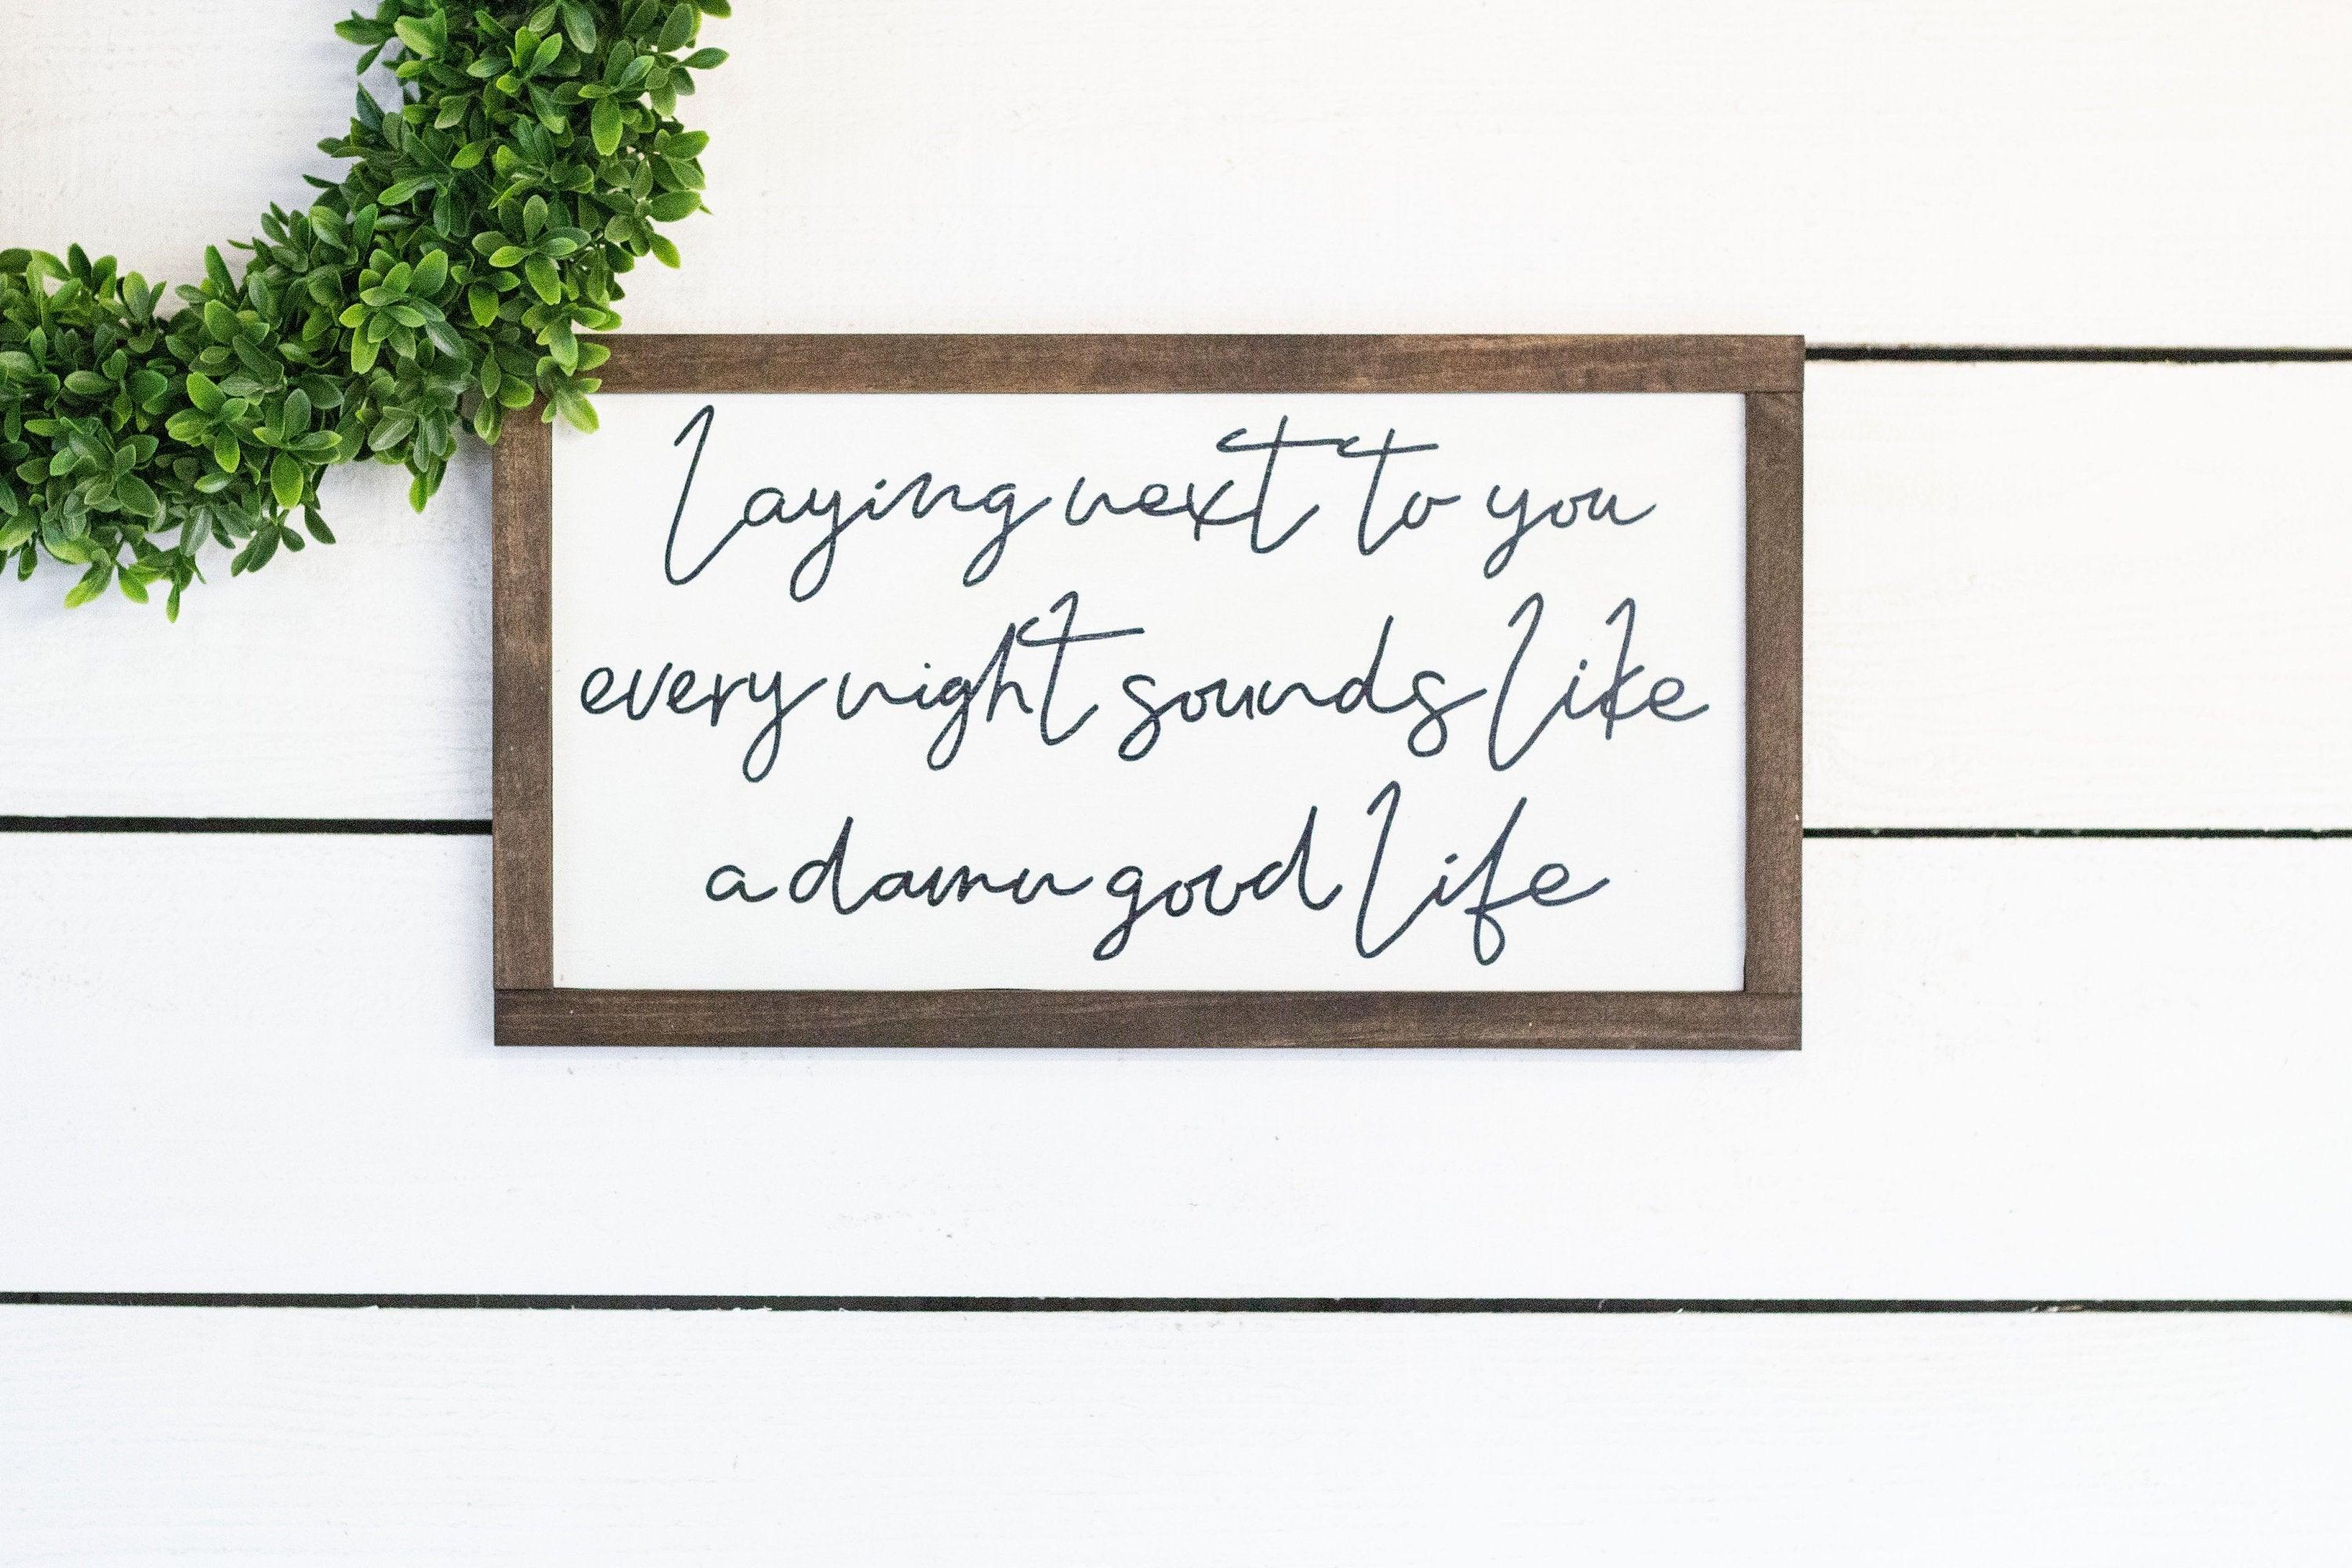 laying next to you
every night sounds like
a damn good life